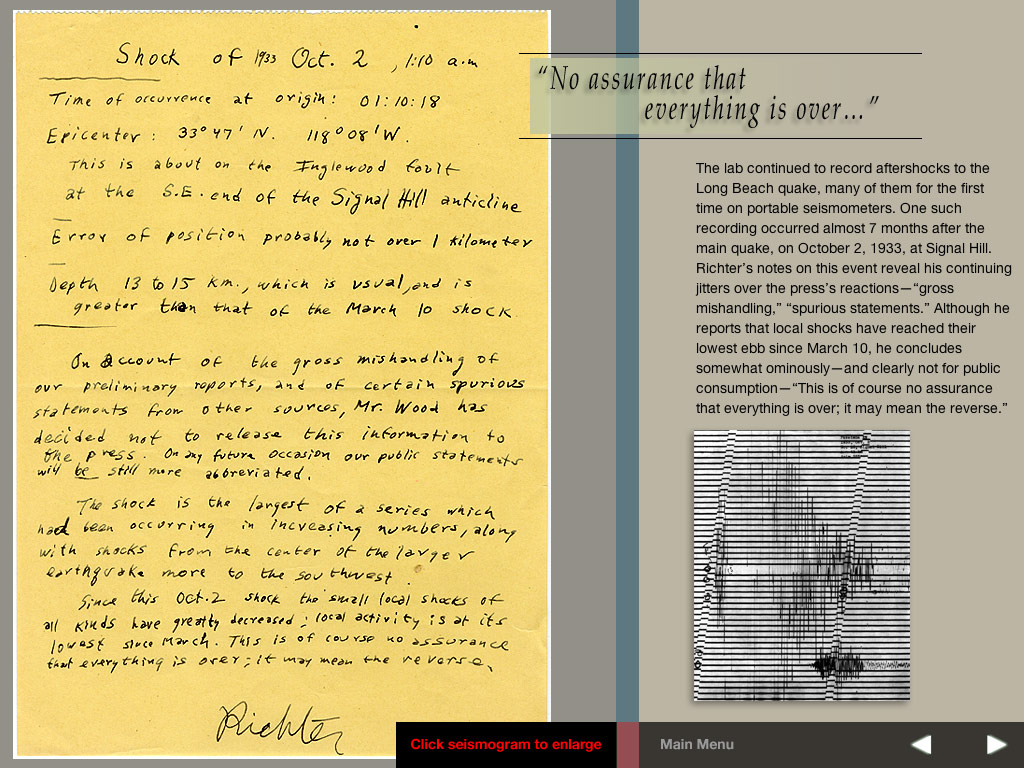 Shock of 1933 Oct. 2, 1:10 a.m
Time of occurrence at origin: 01:10:18
Epicenter: 33°47' N. 118°08'W.
This is about on the Inglewood fault
at the S.E. end of the Signal Hill anticline
Error of position probably not over 1 kilometer
Depth 13 to 15 km., which is usual, and is
greater than that of the March 10 shock.
On account of the gross mishandling of
our preliminary reports, and of certain spurious
statements from other sources, Mr. Wood has
decided not to release this information to
the press. On any future occasion our public statements
will be still more abbreviated.
The shock is the largest of a series which
had been occurring in increasing numbers, along
with shocks from the center of the larger
earthquake more to the southwest.
Since this Oct. 2 shock the small local shocks of
all kinds have greatly decreased; local activity is at its
lowest since March. This is of course no assurance
that everything is over; it may mean the reverse.
Richter
“No assurance that
everything is over...”
The lab continued to record aftershocks to the
Long Beach quake, many of them for the first
time on portable seismometers. One such
recording occurred almost 7 months after the
main quake, on October 2, 1933, at Signal Hill.
Richter’s notes on this event reveal his continuing
jitters over the press’s reactions—“gross
mishandling,” “spurious statements.” Although he
reports that local shocks have reached their
lowest ebb since March 10, he concludes
somewhat ominously—and clearly not for public
consumption—“This is of course no assurance
that everything is over; it may mean the reverse.”
Click seismogram to enlarge
Main Menu